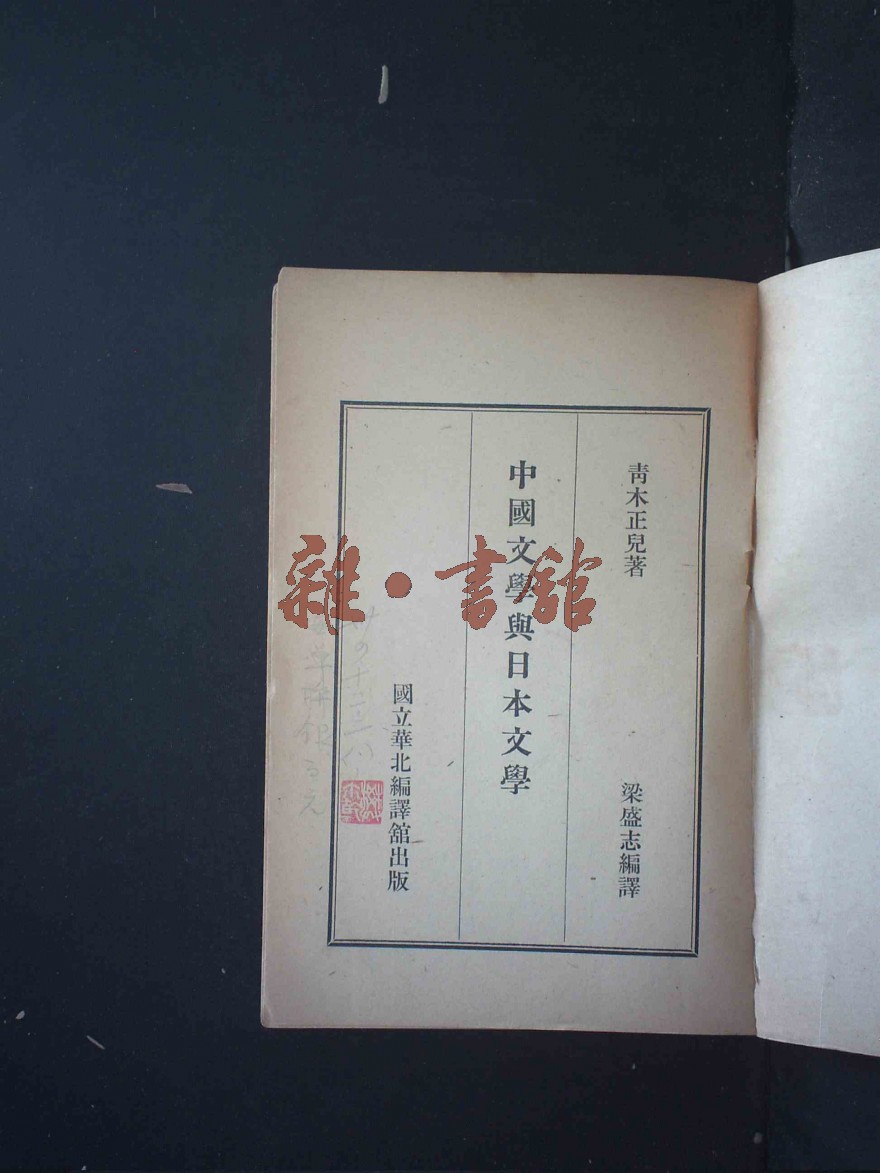 青木正兒著
梁盛志編譯
中國文學與日本文學
國立華北編譯舘出版
雜·書舘